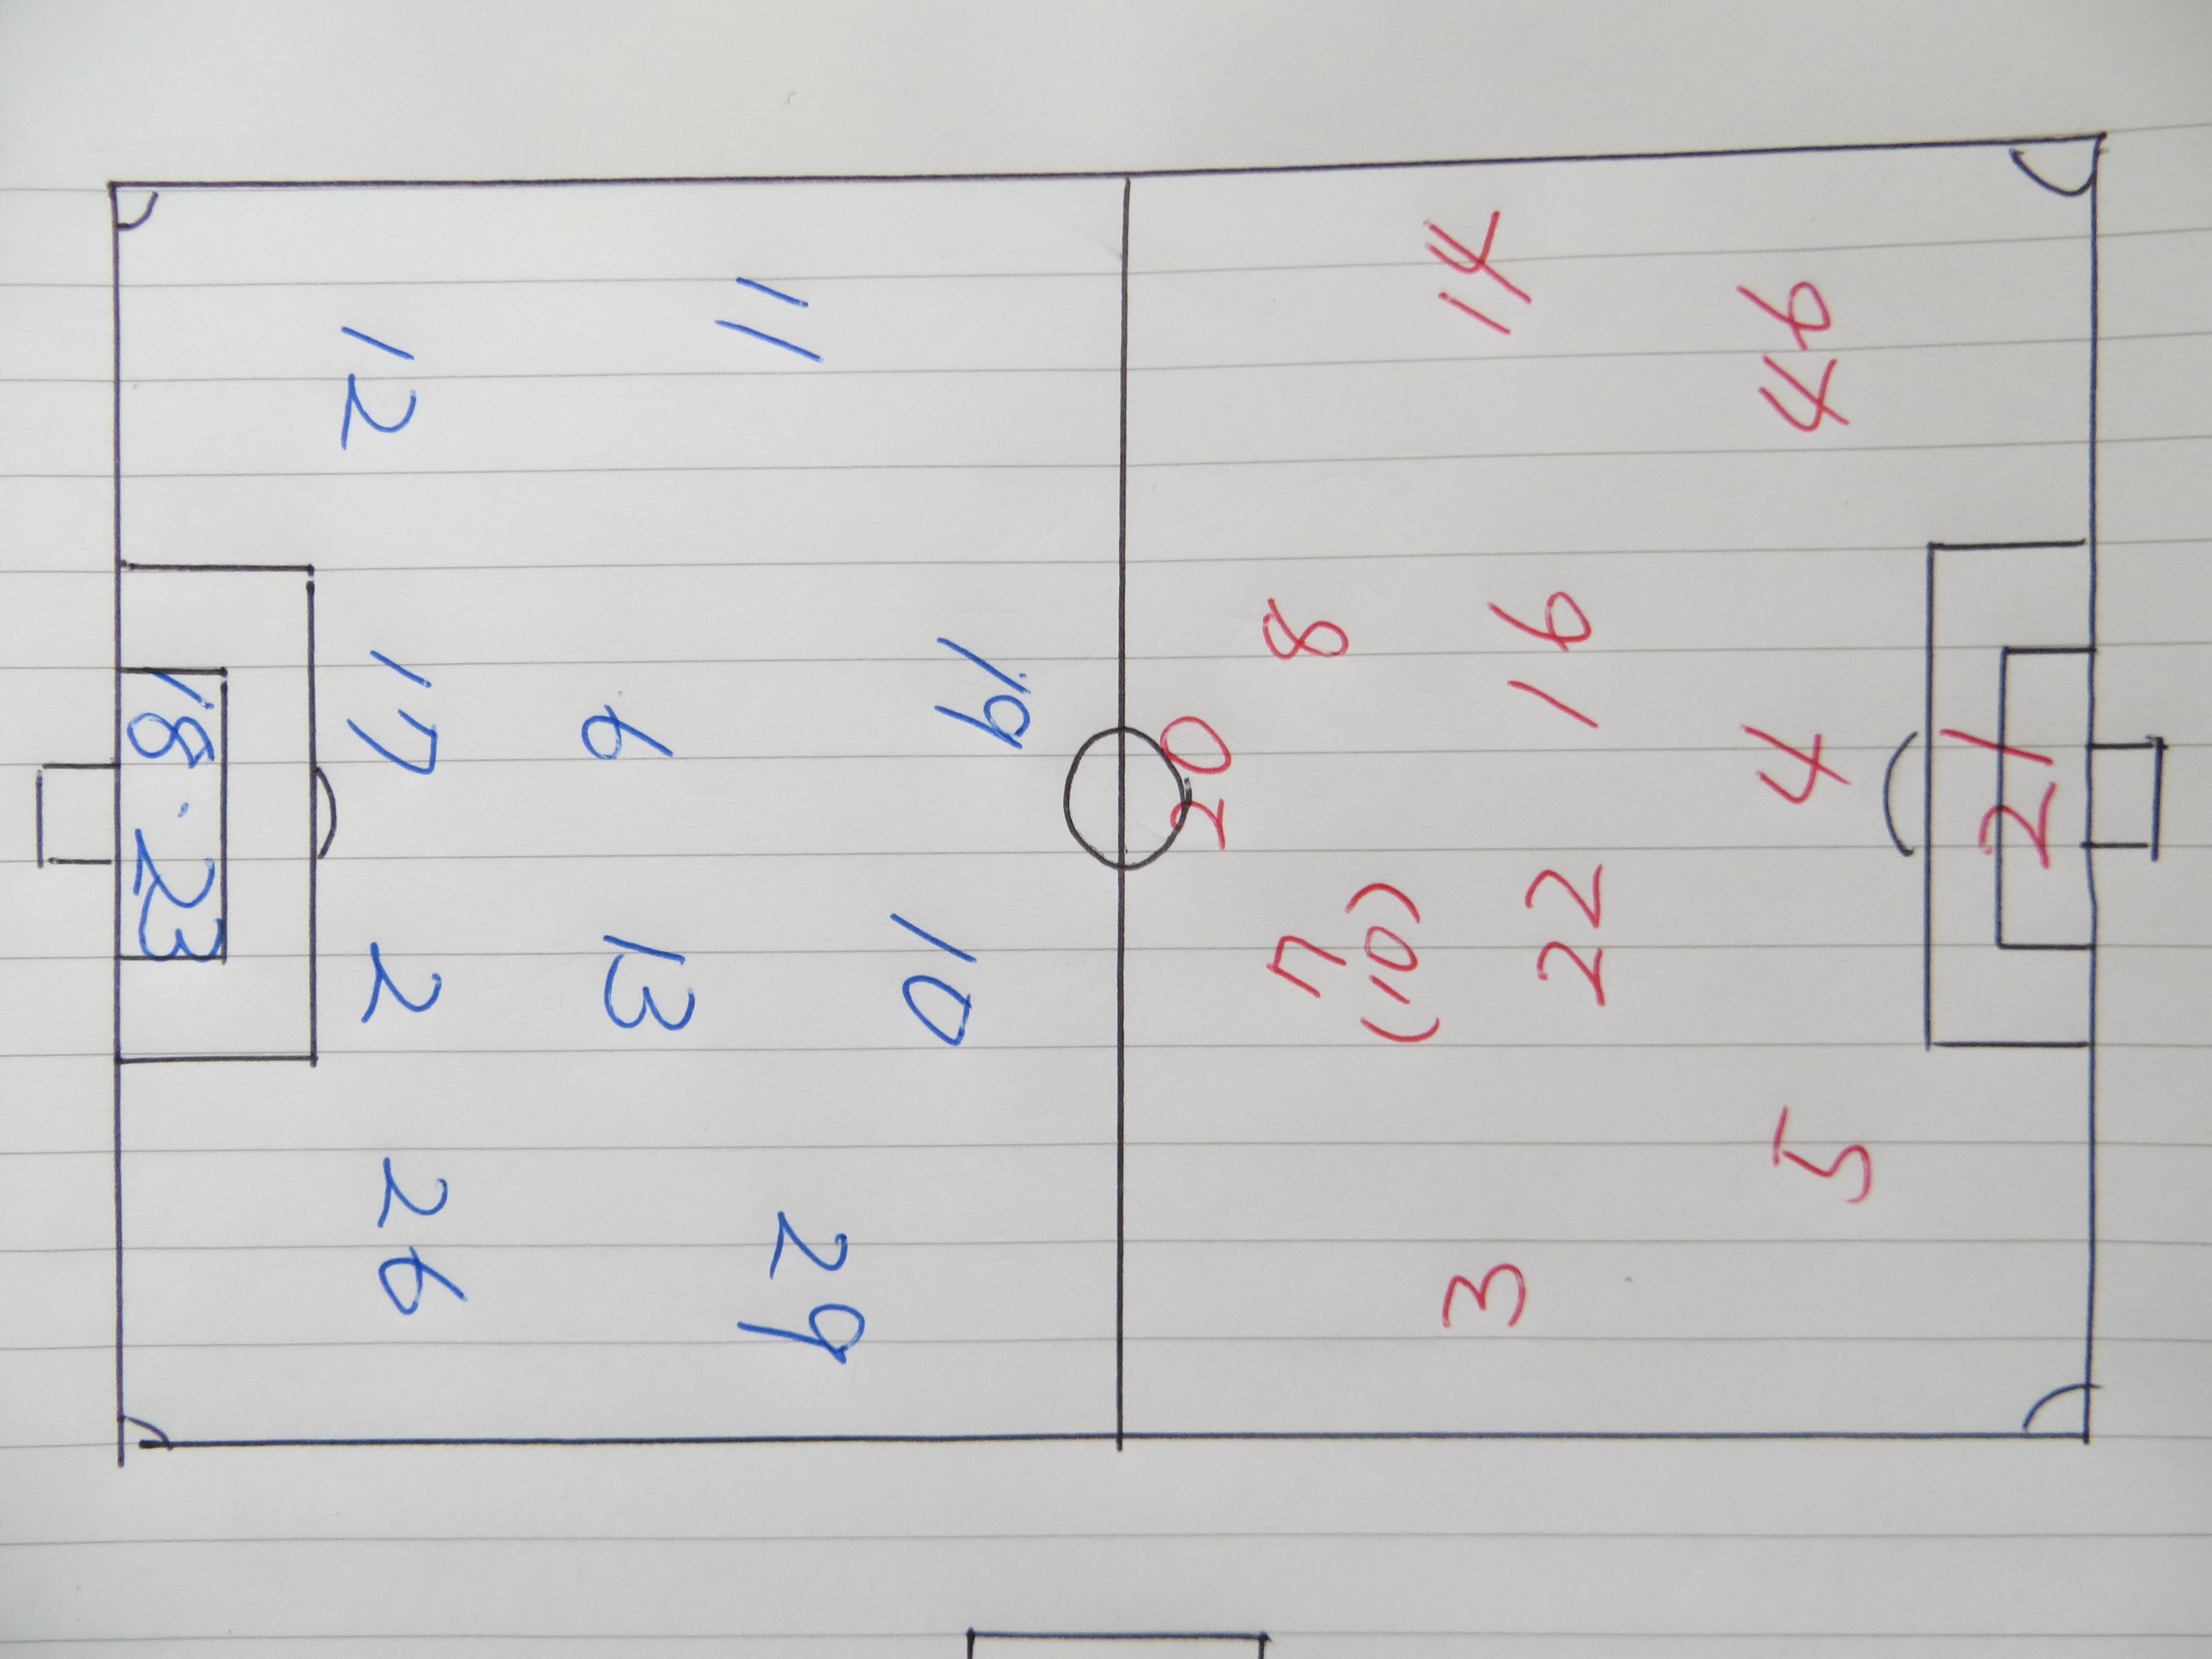 19 10
11 29
6 13
12 17 2 26
18・23
20
7 8
(10)
3 14
22 16
5 4 46
21